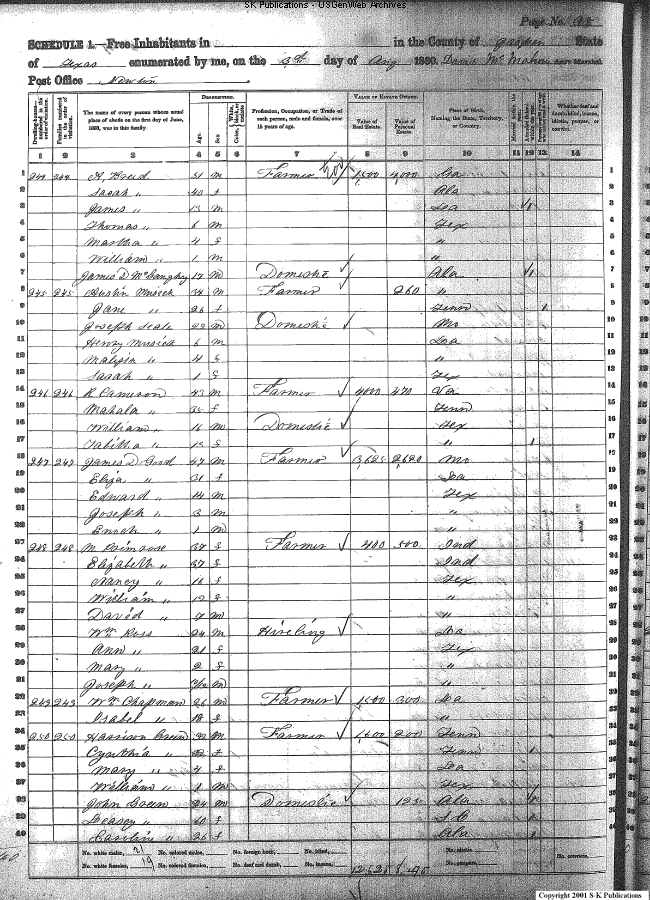 S-K Publications - USGenWeb Archives
Page No. 98
SCHEDULE 1.—Free Inhabitants in in the County of State
of Texas enumerated by me, on the 3rd day of Aug 1860. McMahon Ass't Marshal.
Post Office Newton
DESCRIPTION. VALUE OF ESTATE OWNED.
Dwelling-houses—numbered in the order of visitation.
Families numbered in the order of visitation.
The name of every person whose usual place of abode on the first day of June, 1860, was in this family.
Age. Sex. Color,
Profession, Occupation, or Trade of each person, male and female, over 15 years of age.
Value of Real Estate. Value of Personal Estate.
Place of Birth, Naming the State, Territory, or Country.
Married within the year. Attended School within the year.
Whether deaf and dumb, blind, insane, idiotic, pauper, or convict.
1 2 3 4 5 6 7 8 9 10 11 12 13 14
1 244 244 51 m Farmer 1,500 4,000 1
2 Sarah " 40 f Ala 2
3 James " 13 m La 1 3
4 Thomas " 6 m Tex 4
5 Martha " 4 f " 5
6 William " 1 m " 6
7 James D 17 m Domestic Ala 1 7
8 245 245 Austin Musick 34 m Farmer 260 " 8
9 Jane " 26 f Tenn 1 9
10 Joseph Seale 22 m Domestic Mo 10
11 Henry Musick 6 m La 11
12 Malissa " 4 f " 12
13 Sarah " 1 f Tex 13
14 246 246 R Cameron 43 m Farmer 4000 470 14
15 Mahala " 35 f Tenn 15
16 William " 16 m Domestic Tex 16
17 Tabitha " 13 f " 1 17
18 247 247 James D 47 m Farmer 3,625 2,620 Mo 18
19 Eliza " 31 f La 19
20 Edward " 14 m Tex 20
21 Joseph " 3 m " 21
22 Enoch " 1 m " 22
23 248 248 M 37 Farmer 400 500 Ind 23
24 Elizabeth " 37 f Ind 24
25 Nancy " 16 f Tex 25
26 William " 12 " 26
27 David " 7 m " 27
28 Wm Ross 24 m Hireling La 28
29 Ann " 21 f Tex 29
30 Mary " 2 f " 30
31 Joseph " m " 31
32 249 249 Wm Chapman 26 m Farmer 1,600 300 La 32
33 Isabel " 18 f " 33
34 250 250 Harrison 32 m Farmer 1,600 200 Tenn 34
35 Cynthia " 22 f Tenn 1 35
36 Mary " 4 f La 36
37 William " 1 m Tex 37
38 John 24 m Domestic 125 Ala 38
39 " 60 f S C 1 39
40 Caroline " 26 f Ala 1 40
No. white males, 21 No. colored males, No. foreign born, No. blind, No. idiotic,
No. white females, 19 No. colored females, No. deaf and dumb, No. insane, No. paupers, No. convicts,
Copyright 2001 S-K Publications